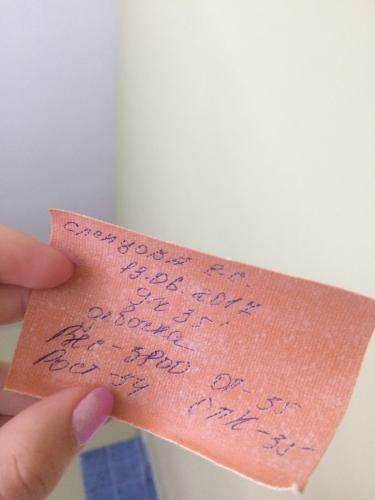 Слепцова Е.С.
13.06.2017
9ч 35'
девочка
Вес-3800 ОГ-35
Рост-54